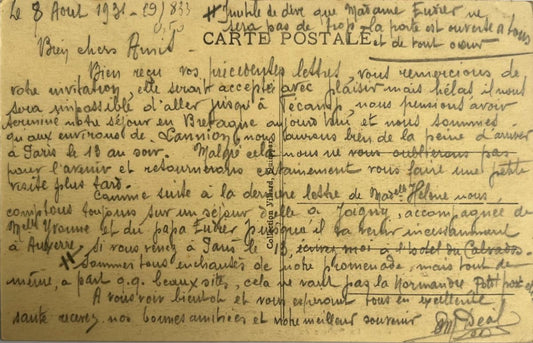 Le 8 Aout 1931 -
# Inutile de dire que Madame Eurier ne
sera pas de trop - la porte est ouverte à tous
et de tout cœur
CARTE POSTALE
Bien chers Amis -
Bien reçu vos précédentes lettres, vous remercions de
votre invitation, elle serait acceptée avec plaisir mais hélas il nous
sera impossible d'aller jusqu'à Fécamp, nous pensions avoir
terminé notre séjour en Bretagne aujourd'hui et nous sommes
qu'aux environs de Lannion, nous aurons bien de la peine d'arriver
à Paris le 13 au soir. Malgré cela nous ne vous oublierons pas
pour l'avenir et retournerons certainement vous faire une petite
visite plus tard.
Comme suite à la dernière lettre de Madelle Hélène nous
comptons toujours sur un séjour d'elle à Joigny, accompagnée de
Melle Yvonne et du papa Eurier puisqu'il va venir incessamment
à Auxerre. Si vous venez à Paris le 13, écrivez moi à l'hotel du Calvados
# Sommes tous enchantés de notre promenade, mais tout de
même, à part q.q. beaux sites, cela ne vaut pas la Normandie. Petit port
A vous voir bientôt et vous espérant tous en excellente
santé recevez nos bonnes amitiées et notre meilleur souvenir
Collection Villard, Quimper